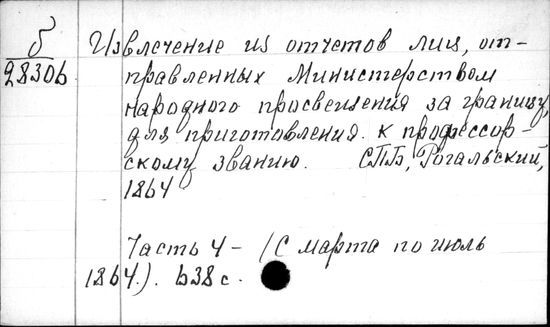 б
28306
Извлечение из отчетов лиц, от-
правленных Министерством
народного просвещения за границу,
для приготовления к профессор-
скому званию. СПБ, Рогальский,
1864
Часть 4 - (С марта по июль
1864.). 638 с.